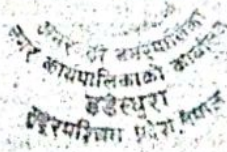 नगर कार्यपालिकाको कार्यालय
डडेल्धुरा
सुदूरपश्चिम प्रदेश, नेपाल